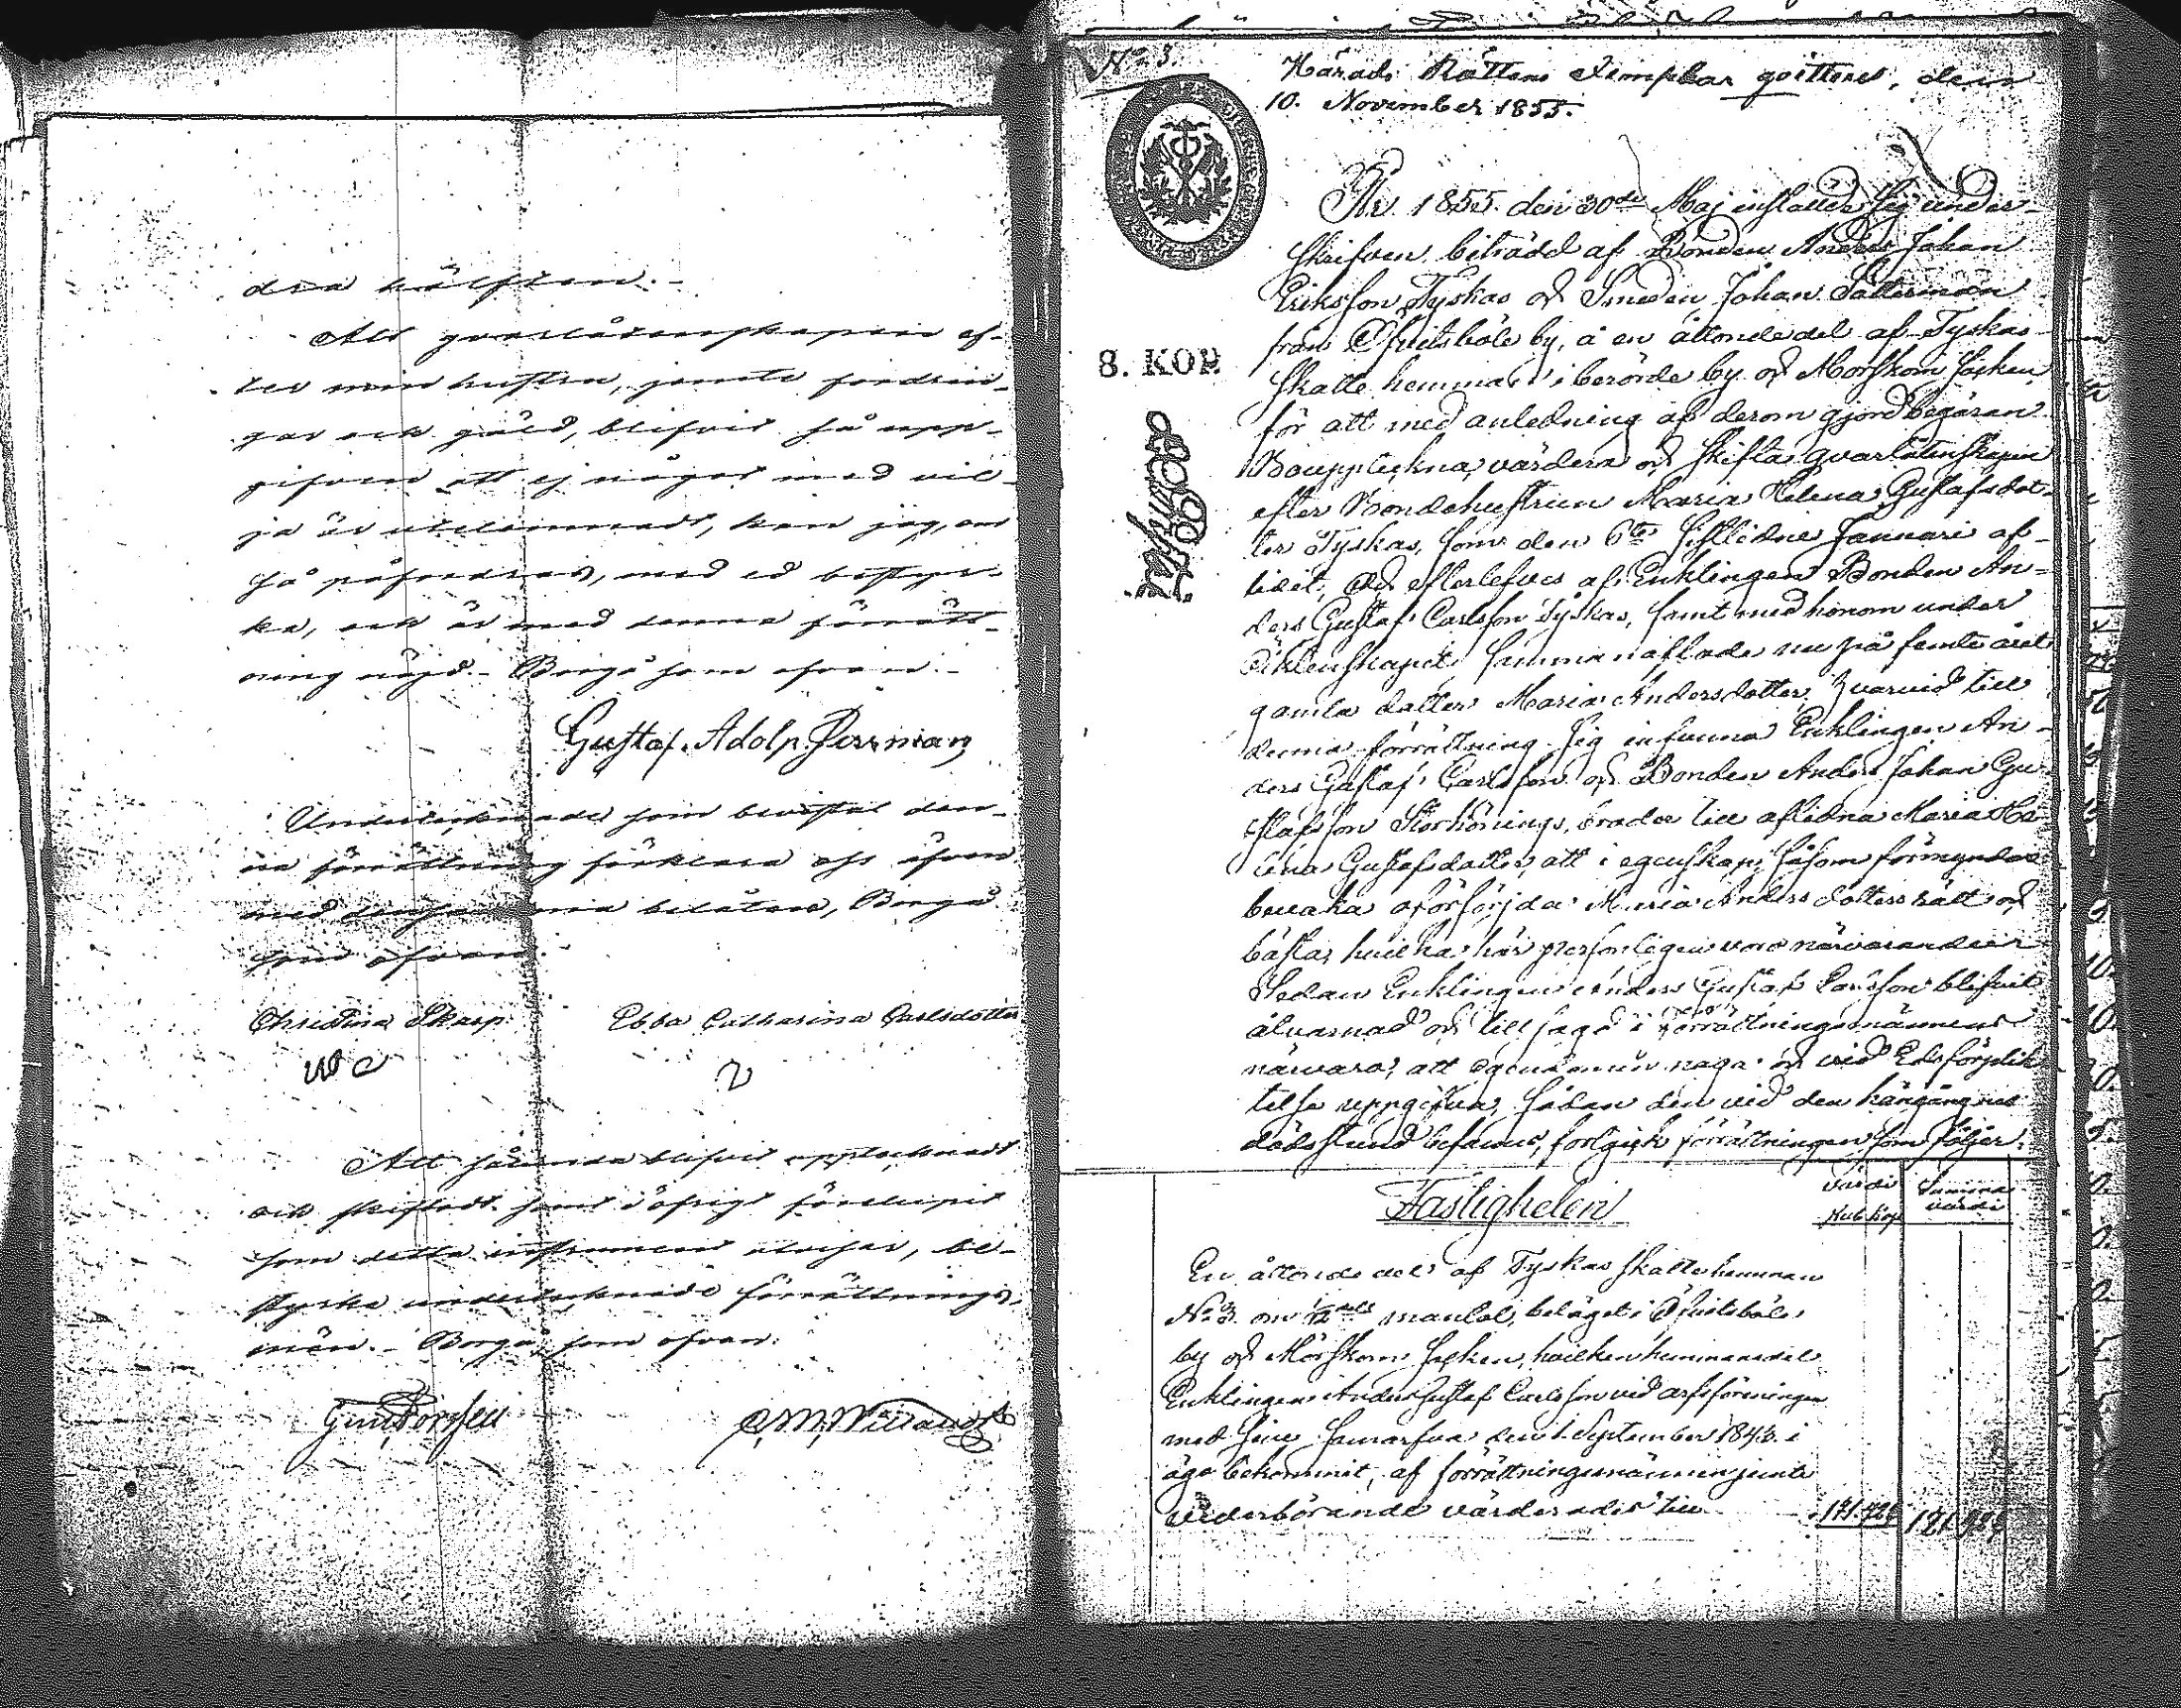 dra hälften.
Att qvarlåtenskapen ef-
ter min hustru, jemte fordrin-
gar och gäld, blifvit så upp-
gifven att ej något med vil-
ja är utelemnadt, kan jag, om
så påfordras, med ed bestyr-
ka, och är med denna förrätt-
ning nöjd. - Borgå som ofvan. -
Gustaf Adolp
Undertecknade som bevistat den-
na förrättning förklara oss äfven
med densamma belåtne, Borgå
som ofvan.
Christina Skarp Ebba Catharina Carlsdotter
Att sålunda blifvit upptecknadt
och skiftadt samt i öfrigt förelupit
som detta instrument utvisar, be-
styrka undertecknade förrättnings-
män. - Borgå, som ofvan.
No 3.
Härads Rättens Exemplar qvitteras, den
10. November 1855.
År 1855 den 30de Maj inställde sig under-
skrifven, biträdd af Bonden Anders Johan
Eriksson Tyskas och Smeden Johan Sätterman
från Öfvitsböle by, å en åttondedel af Tyskas
8. KOP.
Skatte hemman i berörde by och Mörskom Socken,
för att med anledning af derom gjord begäran
Bouppteckna, värdera och skifta qvarlåtenskapen
efter Bondehustrun Maria Helena Gustafsdot-
ter Tyskas, som den 6te sistlidne Januari af-
lidit, och efterlefves af Enklingen Bonden An-
ders Gustaf Carlsson Tyskas, samt med honom under
Äktenskapet sammanaflade nu på femte året
gamla dotter Maria Andersdotter, hvarvid till
denna förrättning sig infunno Enklingen An-
ders Gustaf Carlsson och Bonden Anders Johan Gu-
stafsson Storhönings, broder till aflidna Maria He-
lena Gustafsdotter, att i egenskap såsom förmyndare
bevaka oförsörjda Maria Andersdotters rätt och
bästa, hvilka här personligen voro närvarande
Sedan Enklingen Anders Gustaf Carlsson blifvit
alvarnad och tillsagd i förrättningsmännens
närvaro, att egendomen noga och vid Edsförplik
telse uppgifva, sådan den vid den hängångnas
dödsstund befanns, förgick förrättningen som följer.
Fastigheten
Värdi
Rub. Kop
Summa
värde
En åttondedel af Tyskas skattehemman
No 3. om 1/2 mantal, beläget i Öfvitsböle
by och Mörskom Socken, hvilken hemmansdel
Enklingen Anders Gustaf Carlsson vid arfsföreningen
med sine Samarfva den 1. September 1843. i
ägo bekommit, af förrättningsmännen jemte
vederbörande värderades till